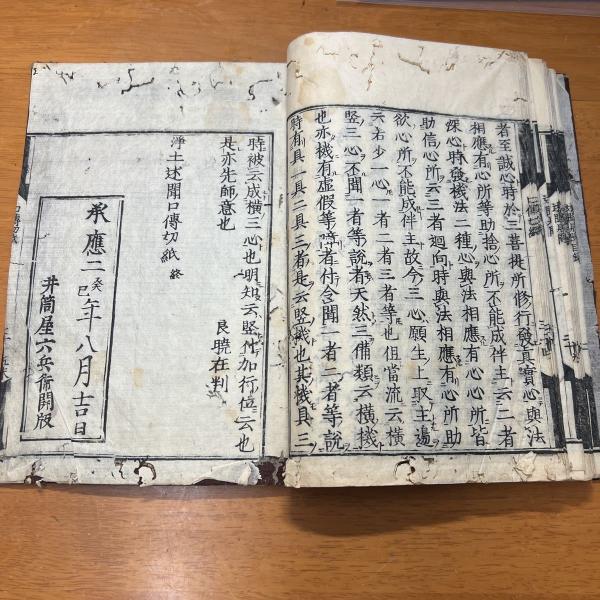 者至誠心時於三菩提所修行發真實心與法
相應有心所等助捨心所不能成伴主云二者
深心時發機法二種心與法相應有心心所皆
助信心所云三者迴向時與法相應有心所助
欲心所不能成伴主故今三心願生上取主邊
云右少一心一者二者三者等也但當流云橫
竪三心不聞一者等說者天然三備類云橫機
也亦機有虛假等障者付含聞二者二者等說
時有具一具二具三者是云竪機也其機具三
時被云成橫三心也明知云竪件加行位云也
是亦先師意也
良曉在判
淨土述聞口傳切紙 終
承應二癸巳年八月吉日
井筒屋六兵衛開版